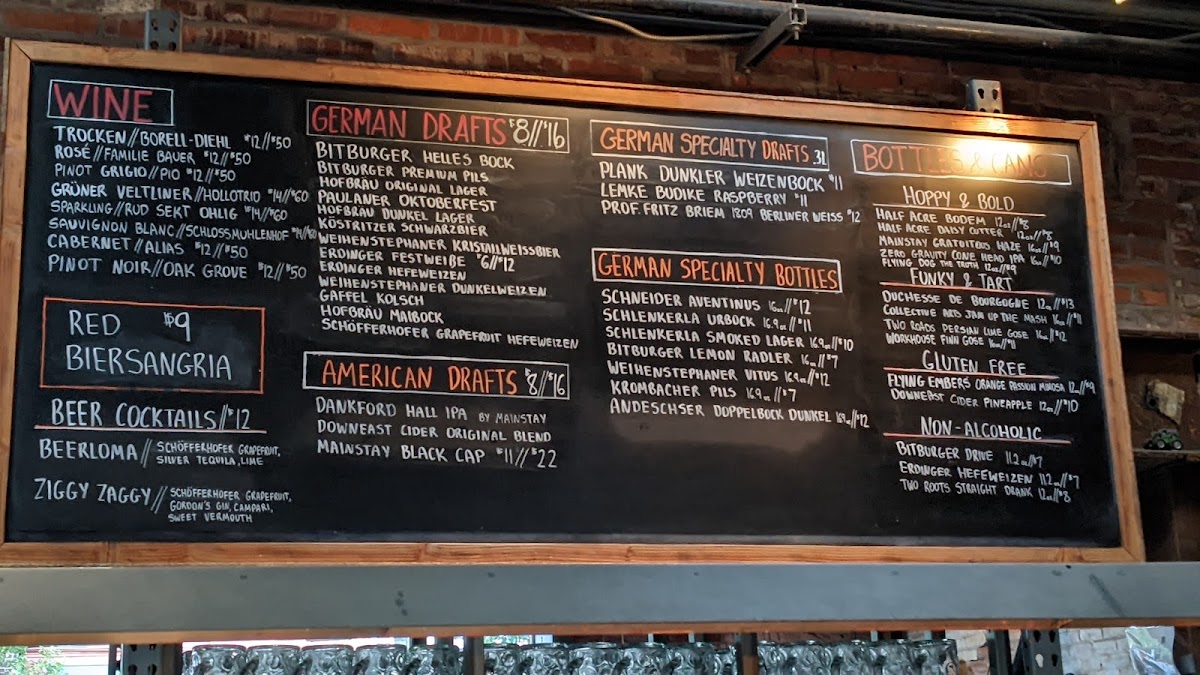 WINE
TROCKEN//BORELL-DIEHL $12//$50
ROSÉ//FAMILIE BAUER $12//$50
PINOT GRIGIO//PIO $12//$50
GRÜNER VELTLINER//HOLLOTRIO $14//$60
SPARKLING//RUD SEKT OHLIG $14//$60
SAUVIGNON BLANC//SCHLOSSMUHLENHOF $14//$60
CABERNET//ALIAS $12//$50
PINOT NOIR//OAK GROVE $12//$50
RED $9
BIERSANGRIA
BEER COCKTAILS//$12
BEERLOMA// SCHÖFFERHOFER GRAPEFRUIT,
SILVER TEQUILA, LIME
ZIGGY ZAGGY// SCHÖFFERHOFER GRAPEFRUIT,
GORDON'S GIN, CAMPARI,
SWEET VERMOUTH
GERMAN DRAFTS $8//$16
BITBURGER HELLES BOCK
BITBURGER PREMIUM PILS
HOFBRÄU ORIGINAL LAGER
PAULANER OKTOBERFEST
HOFBRÄU DUNKEL LAGER
KÖSTRITZER SCHWARZBIER
WEIHENSTEPHANER KRISTALLWEISSBIER
ERDINGER FESTWEIßE $6//$12
ERDINGER HEFEWEIZEN
WEIHENSTEPHANER DUNKELWEIZEN
GAFFEL KOLSCH
HOFBRÄU MAIBOCK
SCHÖFFERHOFER GRAPEFRUIT HEFEWEIZEN
AMERICAN DRAFTS $8//$16
DANKFORD HALL IPA BY MAINSTAY
DOWNEAST CIDER ORIGINAL BLEND
MAINSTAY BLACK CAP $11//$22
GERMAN SPECIALTY DRAFTS .3L
PLANK DUNKLER WEIZENBOCK $11
LEMKE BUDIKE RASPBERRY $11
PROF. FRITZ BRIEM 1809 BERLINER WEISS $12
GERMAN SPECIALTY BOTTLES
SCHNEIDER AVENTINUS 16oz//$12
SCHLENKERLA URBOCK 16.9oz//$11
SCHLENKERLA SMOKED LAGER 16.9oz//$10
BITBURGER LEMON RADLER 16oz//$7
WEIHENSTEPHANER VITUS 16.9oz//$12
KROMBACHER PILS 16.9oz//$7
ANDESCHSER DOPPELBOCK DUNKEL 16.9oz//$12
BOTTLES & CANS
HOPPY & BOLD
HALF ACRE BODEM 12oz//$8
HALF ACRE DAISY CUTTER 12oz//$8
MAINSTAY GRATUITOUS HAZE 16oz//$9
ZERO GRAVITY CONE HEAD IPA 16oz//$10
FLYING DOG THE TRUTH 12oz//$9
FUNKY & TART
DUCHESSE DE BOURGOGNE 12oz//$13
COLLECTIVE ARTS JAM UP THE MASH 16oz//$11
TWO ROADS PERSIAN LIME GOSE 16oz//$12
WORKHOUSE FINN GOSE 16oz//$11
GLUTEN FREE
FLYING EMBERS ORANGE PASSION MIMOSA 12oz//$9
DOWNEAST CIDER PINEAPPLE 12oz//$10
NON-ALCOHOLIC
BITBURGER DRIVE 11.2oz//$7
ERDINGER HEFEWEIZEN 11.2oz//$7
TWO ROOTS STRAIGHT DRANK 12oz//$8